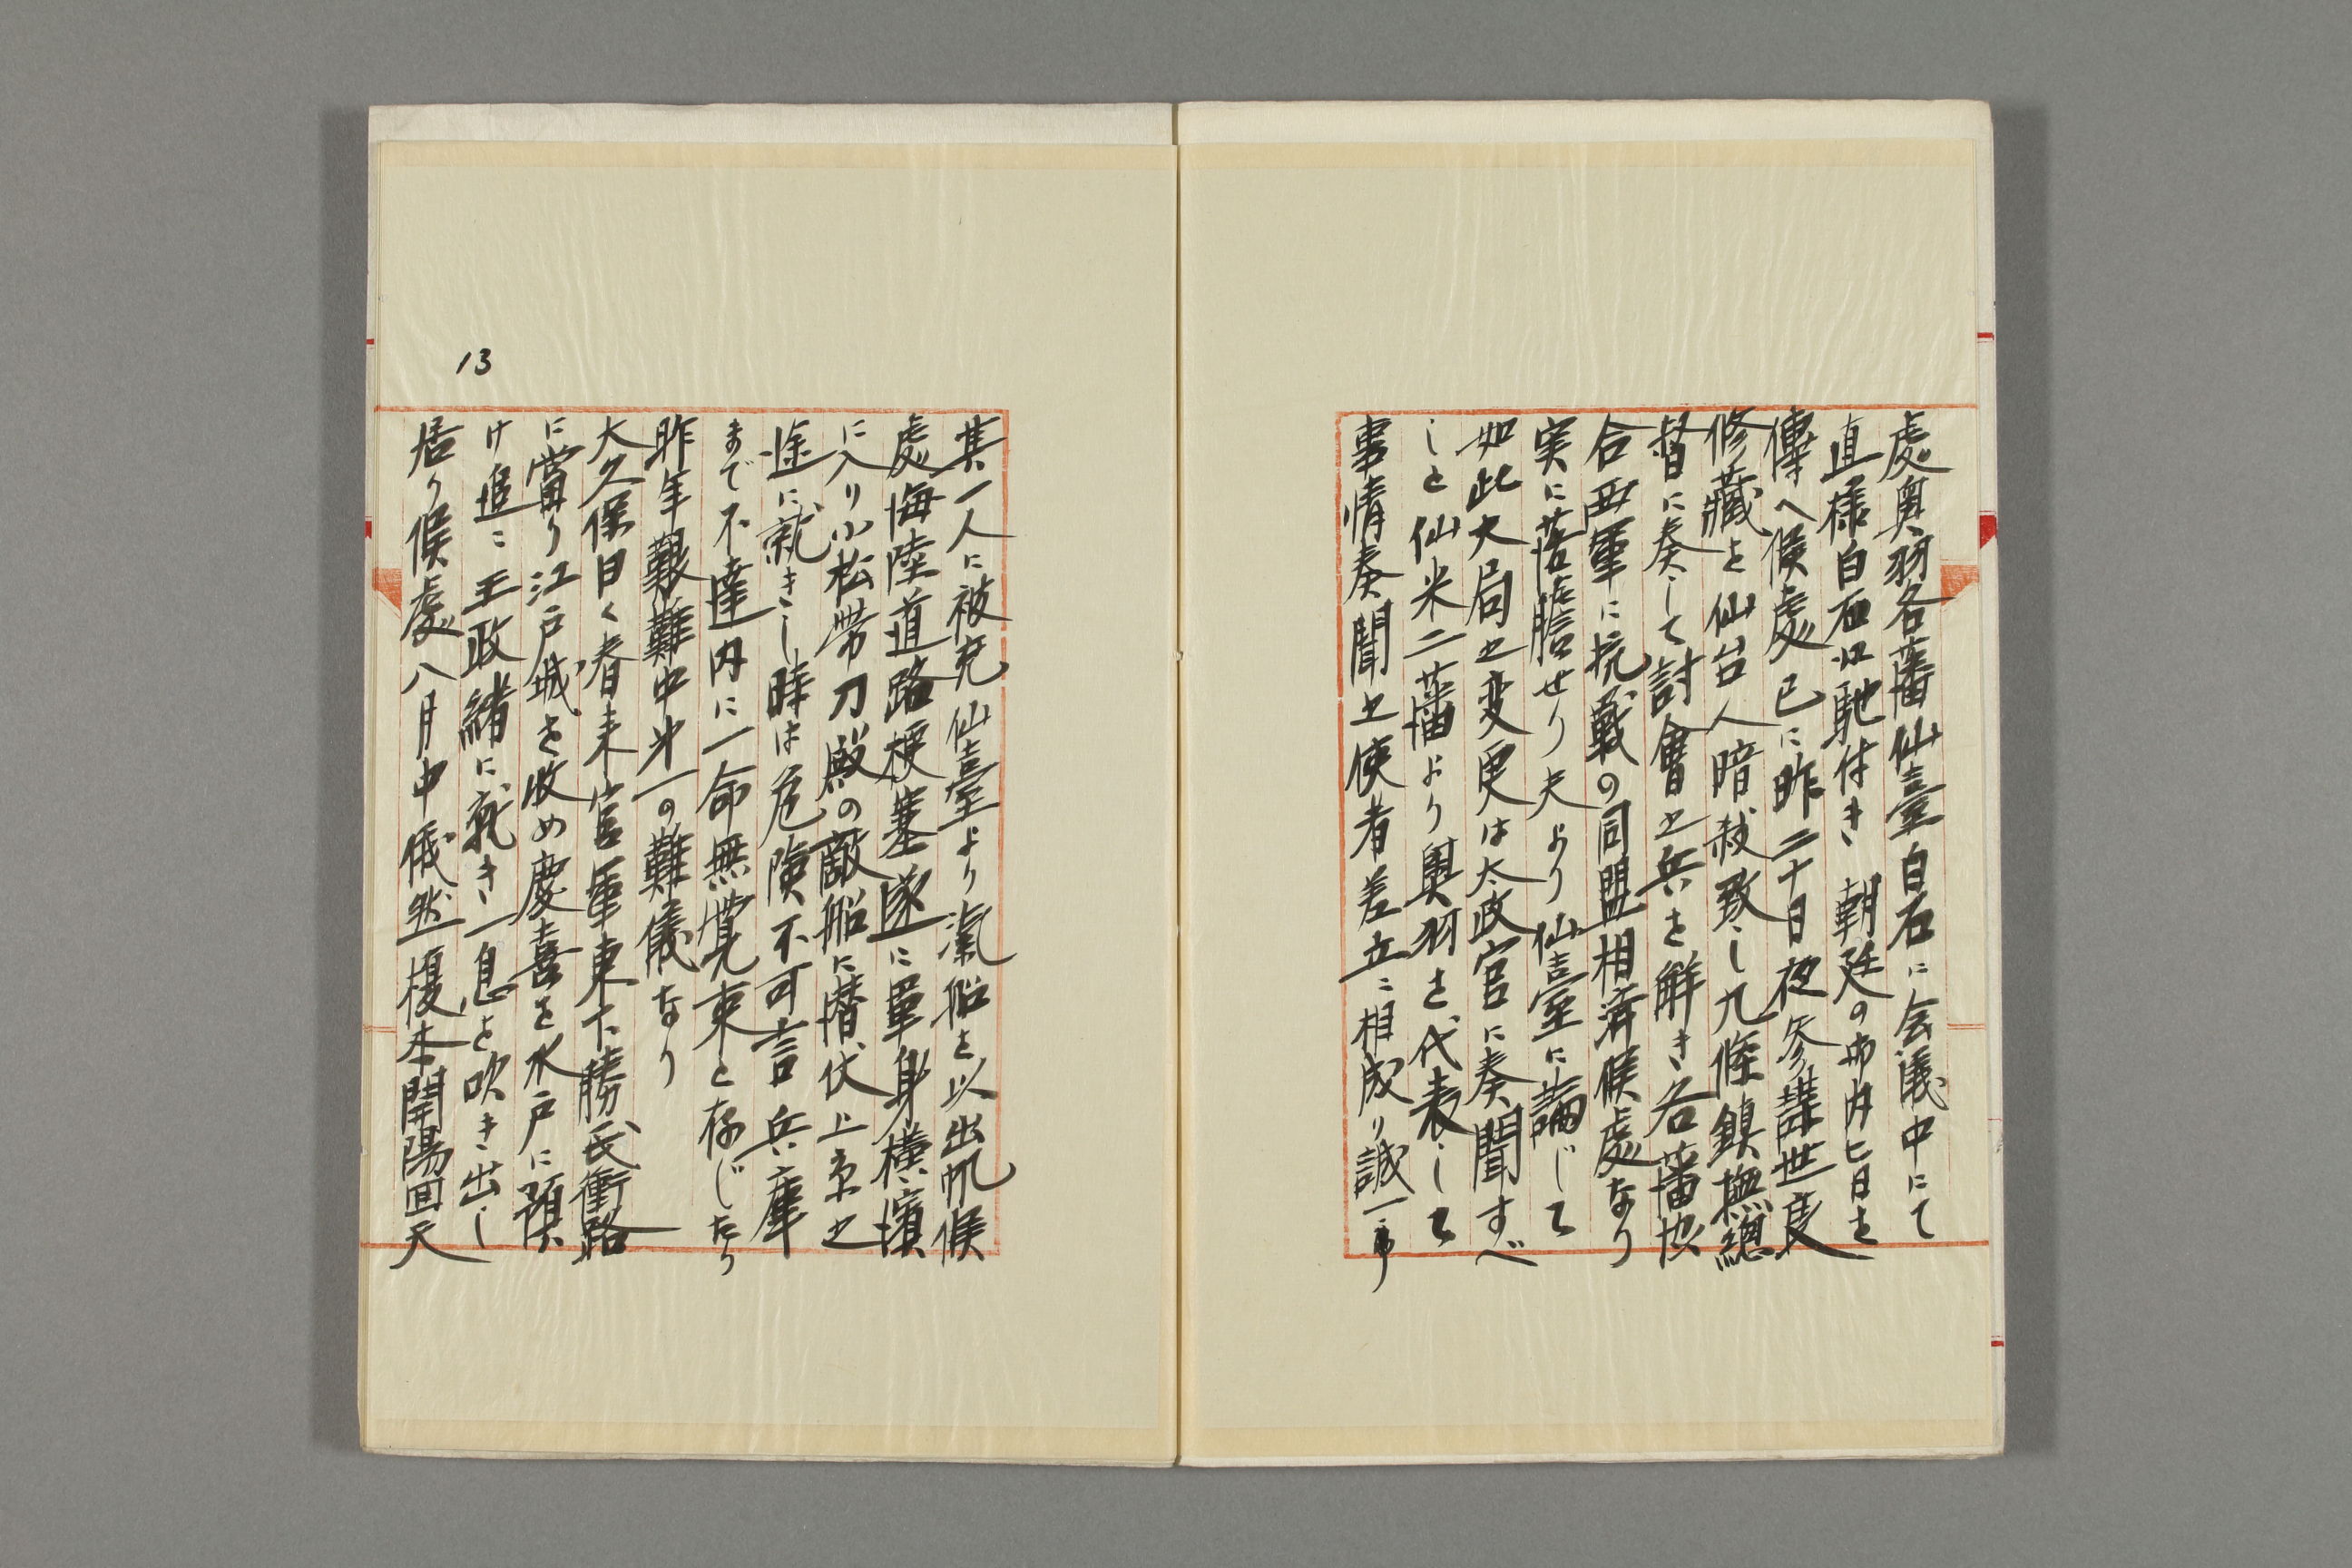 處奥羽各藩仙臺白石に会議中にて
直様白石江馳付き　朝廷の御内旨を
傳へ候處已に昨二十日夜参謀世良
修藏を仙台人暗殺致し九條鎮撫總
督に奏して討會之兵を解き各藩協
合西軍に抗戰の同盟相濟候處なり
実に落膽せり夫より仙臺に論じて
如此大局之変更は太政官に奏聞すべ
しと仙米二藩より奥羽を代表して
事情奏聞之使者差立に相成り誠一事
其一人に被充仙臺より滊船を以出帆候
處海陸道路梗塞遂に單身横濱
に入り小松帶刀殿の敵船に潜伏上京之
途に就きし時は危険不可言兵庫
まで不達内に一命無覺束と存じたり
昨年艱難中第一の難儀なり
大久保曰く春来官軍東下勝氏衝路
に當り江戸城を收め慶喜を水戸に預
け追に王政緒に就き一息を吹き出し
居り候處八月中俄然榎本開陽回天
13